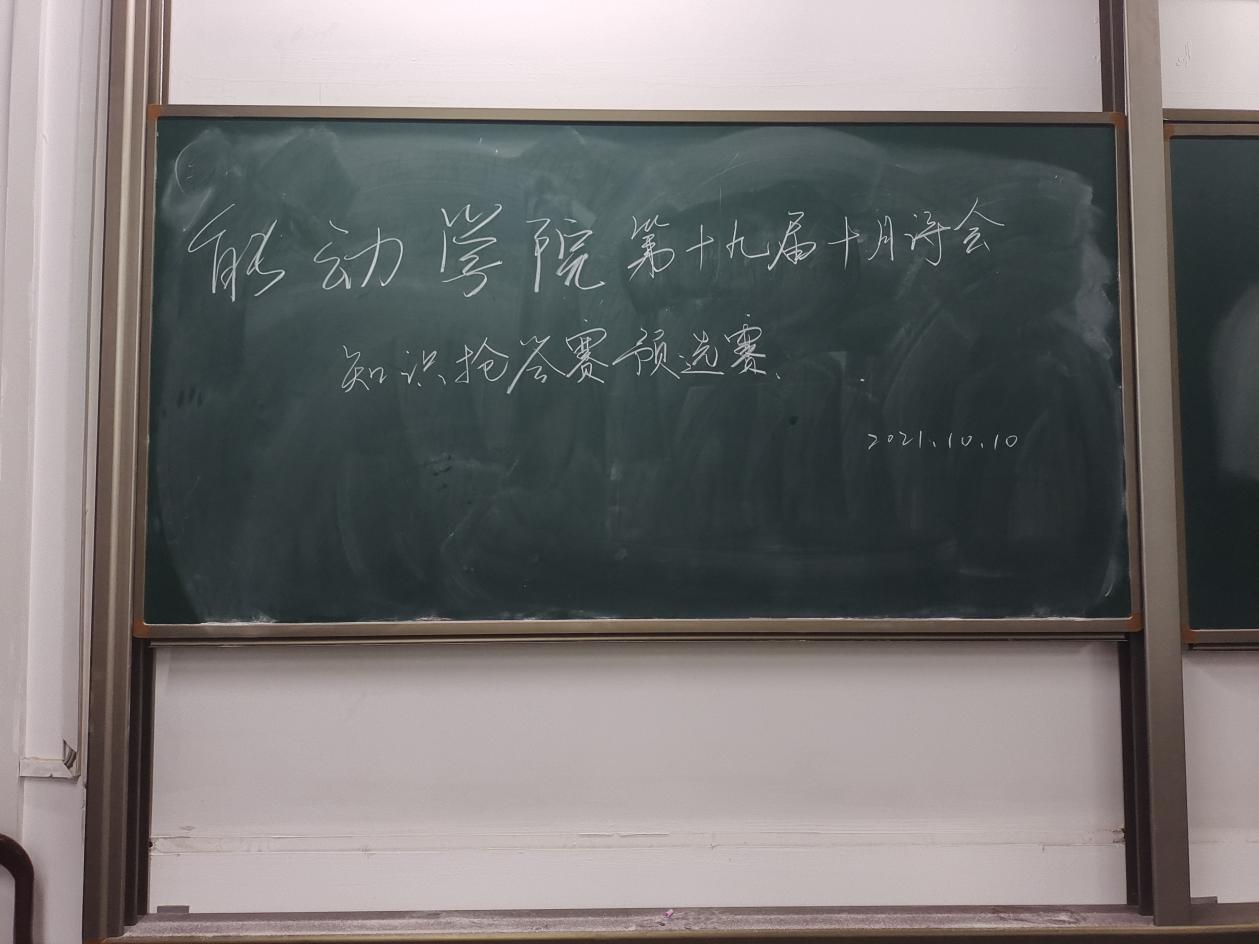 能动学院第十九届十月诗会
知识抢答赛预选赛.
2021.10.10